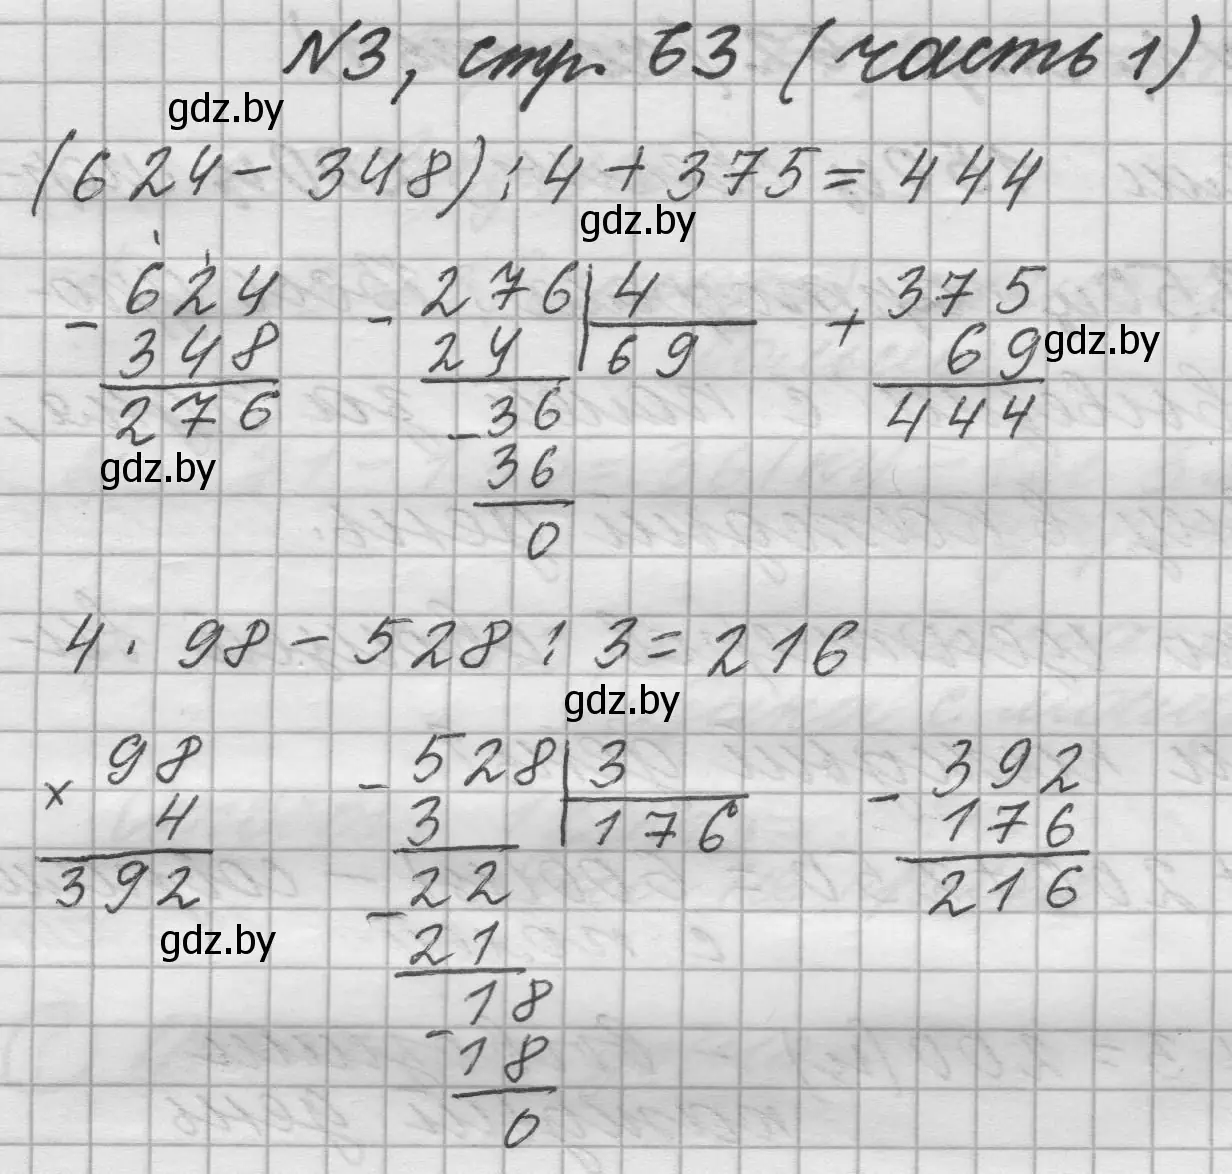 №3, стр. 63 (часть 1)
gdz.by
(624 - 348) : 4 + 375 = 444
gdz.by
- 624
348
276
- 276 | 4
24 69
- 36
36
0
+ 375
69
444
gdz.by
gdz.by
4 · 98 - 528 : 3 = 216
gdz.by
× 98
4
392
- 528 | 3
3 176
- 22
21
- 18
18
0
- 392
176
216
gdz.by